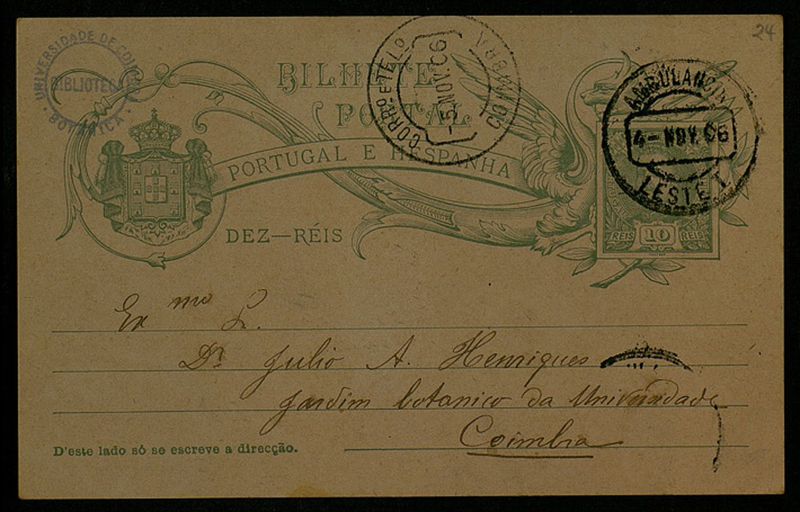 24
UNIVERSIDADE DE COIMBRA
BIBLIOTECA
BOTANICA
BILHETE
POSTAL
PORTUGAL E HESPANHA
DEZ—RÉIS
CORRO E TELO
-5 NOV. 06
COIMBRA
AMBULANCIA
4- NOV. 06
LESTE I
REIS 10 REIS
Ex mo Sr.
Dr. Julio A. Henriques
Jardim botanico da Universidade
Coimbra
D'este lado só se escreve a direcção.